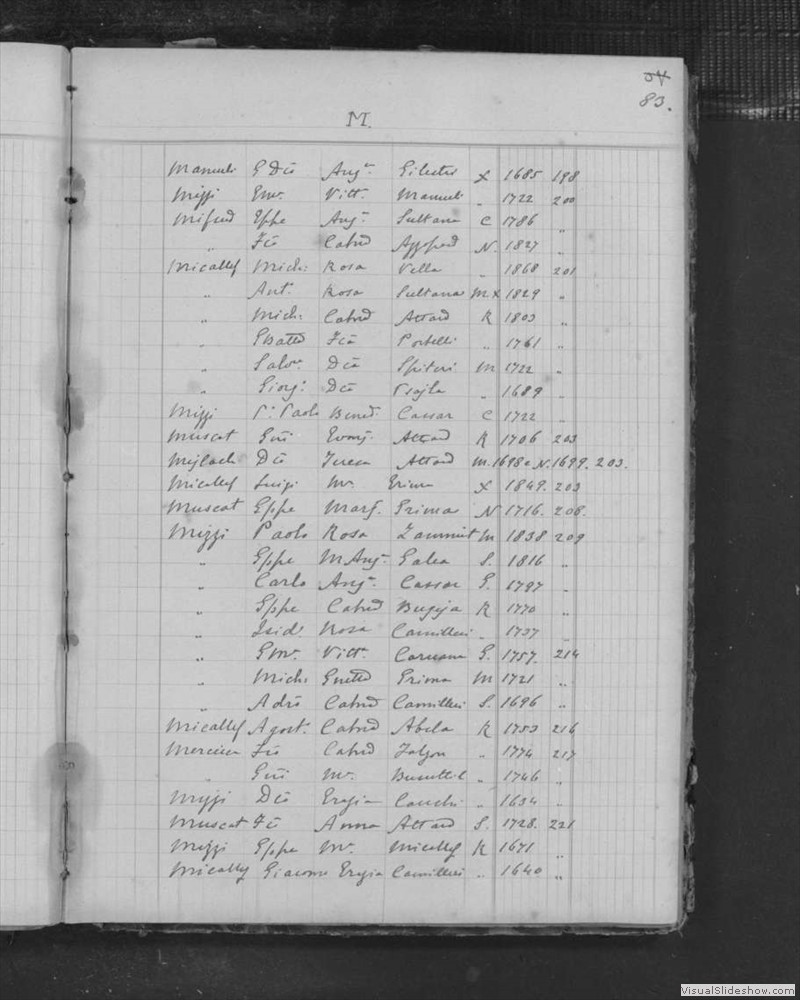 54
83.
M.
Manueli G Dco Ang.ª X 1685 198
Mizzi Em. Vitt. Manueli " 1722 200
Mifsud Gppe Ang.ª Sultana C 1786 "
" Fco Cat.na N. 1827 "
Micallef Mich. Rosa Vella " 1868 201
" Ant. Rosa Sultana M X 1829 "
" Mich. Cat.na Attard K 1803 "
" GBatta Portelli " 1761 "
" Salv. Dca Spiteri M 1722 "
" Giorg. Dca Psajla " 1689 "
Mizzi P. Paolo Bened. Cassar C 1722 "
Muscat Gio Attard K 1706 203
Dco Teresa Attard M. 1698 e N. 1699. 203.
Micallef Luigi M. Grima X 1849. 203
Muscat Gppe Marg. Grima N 1716. 208.
Mizzi Paolo Rosa Zammit M 1838 209
" Gppe M Ang.ª Galea S. 1816 "
" Carlo Ang.ª Cassar G. 1797 "
" Gppe Cat.na Bugeja K 1770 "
" Isid. Rosa Camilleri " 1737 "
" Em. Vitt. Caruana G. 1757. 214
" Mich. Grima M 1721 "
" Adrº Cat.na Camilleri S. 1696 "
Micallef Agost. Cat.na Abela K 1753 216
Mercieca Fco Cat.na Falzon " 1774 217
" Gio M. Busuttil " 1746 "
Mizzi Dco Grazia Cauchi " 1634 "
Muscat Fco Anna Attard S. 1728. 221
Mizzi Gppe M. Micallef K 1671 "
Micallef Giacomo Grazia Camilleri " 1640 "
VisualSlideshow.com